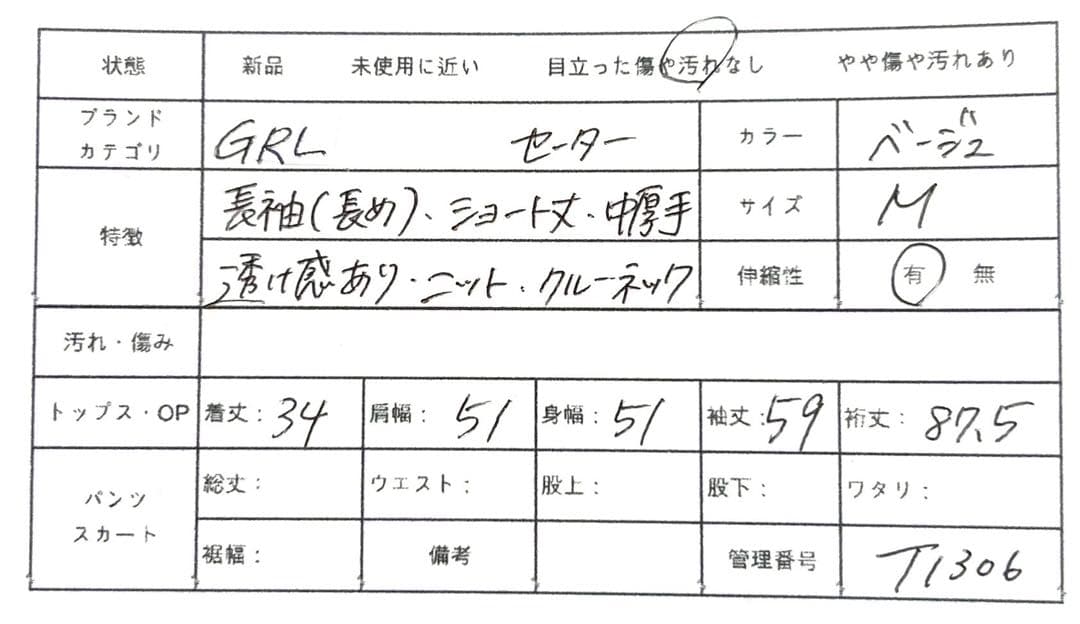 状態 新品 未使用に近い 目立った傷や汚れなし やや傷や汚れあり
ブランド
カテゴリ GRL セーター カラー ベージュ
特徴 長袖(長め)、ショート丈・中厚手 サイズ M
透け感あり・ニット・クルーネック 伸縮性 有 無
汚れ・傷み
トップス・OP 着丈: 34 肩幅: 51 身幅: 51 袖丈: 59 裄丈: 87.5
パンツ
スカート 総丈: ウエスト: 股上: 股下: ワタリ:
裾幅: 備考 管理番号 T1306